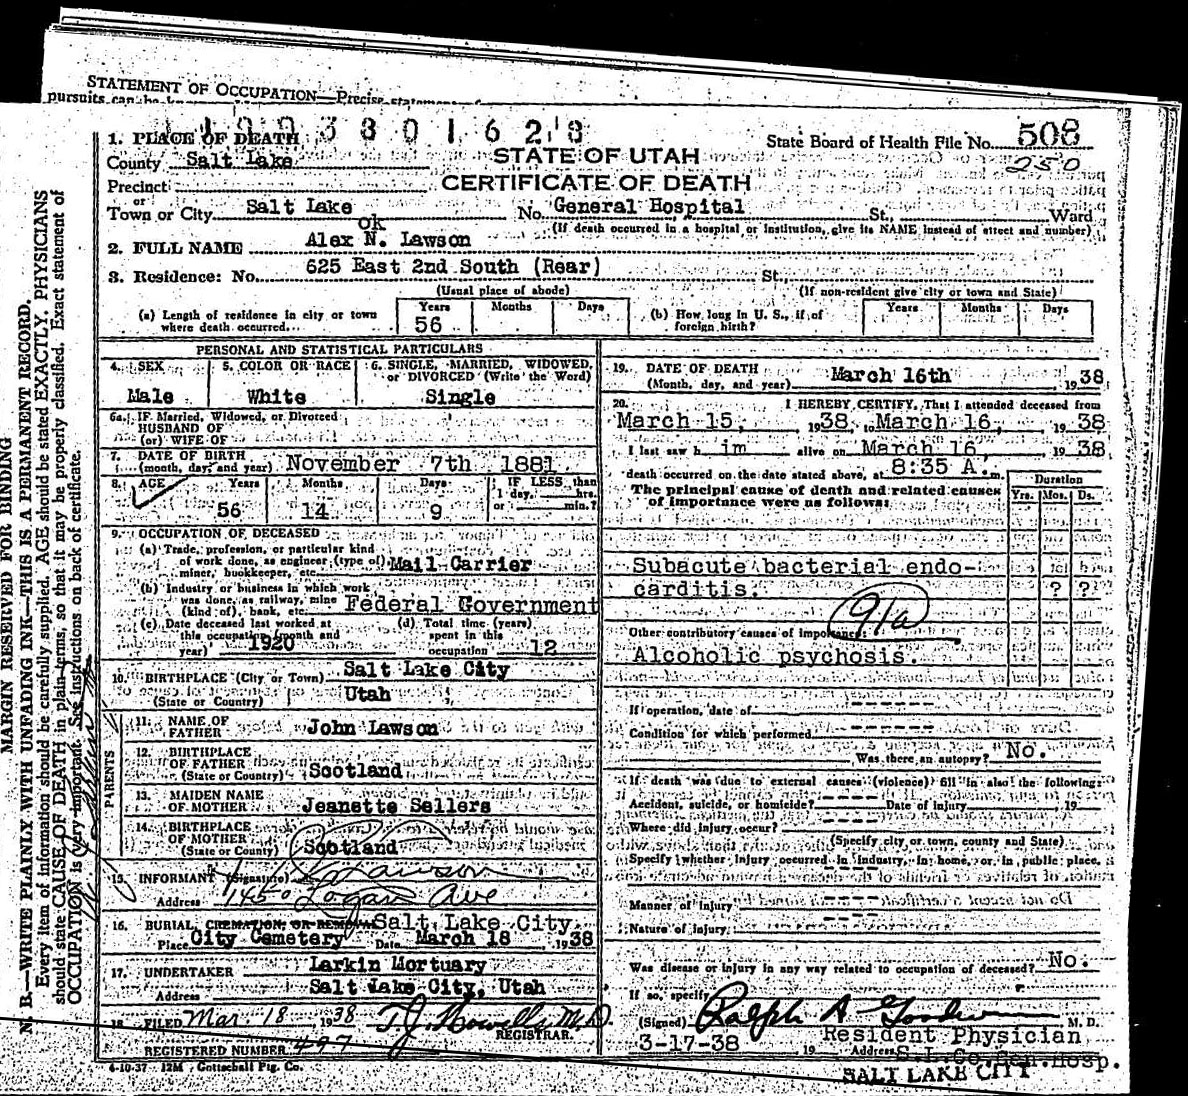 STATEMENT OF OCCUPATION—Precise
pursuits can be
MARGIN RESERVED FOR BINDING
N. B.—WRITE PLAINLY WITH UNFADING INK—THIS IS A PERMANENT RECORD.
Every item of information should be carefully supplied. AGE should be stated EXACTLY. PHYSICIANS
should state CAUSE OF DEATH in plain terms, so that it may be properly classified. Exact statement of
OCCUPATION is very important. See instructions on back of certificate.
1. PLACE OF DEATH
County Salt Lake
STATE OF UTAH
State Board of Health File No. 508
250
Precinct
CERTIFICATE OF DEATH
or
Town or City Salt Lake No. General Hospital St., Ward
(If death occurred in a hospital or institution, give its NAME instead of street and number)
ok
2. FULL NAME Alex N. Lawson
3. Residence: No. 625 East 2nd South (Rear) St.
(Usual place of abode) (If non-resident give city or town and State)
(a) Length of residence in city or town where death occurred Years 56 Months Days
(b) How long in U. S., if of foreign birth? Years Months Days
PERSONAL AND STATISTICAL PARTICULARS
4. SEX Male
5. COLOR OR RACE White
6. SINGLE, MARRIED, WIDOWED, or DIVORCED (Write the Word) Single
6a. IF Married, Widowed, or Divorced
HUSBAND OF
(or) WIFE OF
7. DATE OF BIRTH
(month, day, and year) November 7th 1881
8. AGE Years 56 Months 14 Days 9 IF LESS than 1 day, hrs. or min.?
9. OCCUPATION OF DECEASED
(a) Trade, profession, or particular kind
of work done, as engineer (type of)
miner, bookkeeper, etc. Mail Carrier
(b) Industry or business in which work
was done, as railway, mine
(kind of), bank, etc. Federal Government
(c) Date deceased last worked at
this occupation (month and
year) 1920
(d) Total time (years)
spent in this
occupation 12
10. BIRTHPLACE (City or Town) Salt Lake City
(State or Country) Utah
PARENTS
11. NAME OF
FATHER John Lawson
12. BIRTHPLACE
OF FATHER
(State or Country) Scotland
13. MAIDEN NAME
OF MOTHER Jeanette Sellers
14. BIRTHPLACE
OF MOTHER
(State or Country) Scotland
15. INFORMANT (Signature) Lawson
Address 1450 Logan Ave
16. BURIAL, CREMATION, OR REMOVAL Salt Lake City,
Place City Cemetery Date March 18 1938
17. UNDERTAKER Larkin Mortuary
Address Salt Lake City, Utah
18. FILED Mar. 18 1938 T.J. Howells M.D.
REGISTRAR.
REGISTERED NUMBER 497
4-10-37 12M Gottschall Ptg. Co.
19. DATE OF DEATH
(Month, day, and year) March 16th 1938
20. I HEREBY CERTIFY, That I attended deceased from
March 15, 1938, to March 16, 1938
I last saw h im alive on March 16, 1938
death occurred on the date stated above, at 8:35 A. m.
The principal cause of death and related causes
of importance were as follows:
Duration
Yrs. Mos. Ds.
Subacute bacterial endo-
carditis. ? ?
91a
Other contributory causes of importance:
Alcoholic psychosis.
If operation, date of ------
Condition for which performed ------
Was there an autopsy? No.
If death was due to external causes (violence) fill in also the following:
Accident, suicide, or homicide? ---- Date of injury 19
Where did injury occur? ----
(Specify city or town, county and State)
Specify whether injury occurred in industry, in home, or in public place.
Manner of injury ----
Nature of injury ----
Was disease or injury in any way related to occupation of deceased? No.
If so, specify
(Signed) Ralph A Goodwin M. D.
Resident Physician
3-17-38 19 Address S.L.Co.Gen.Hosp.
SALT LAKE CITY